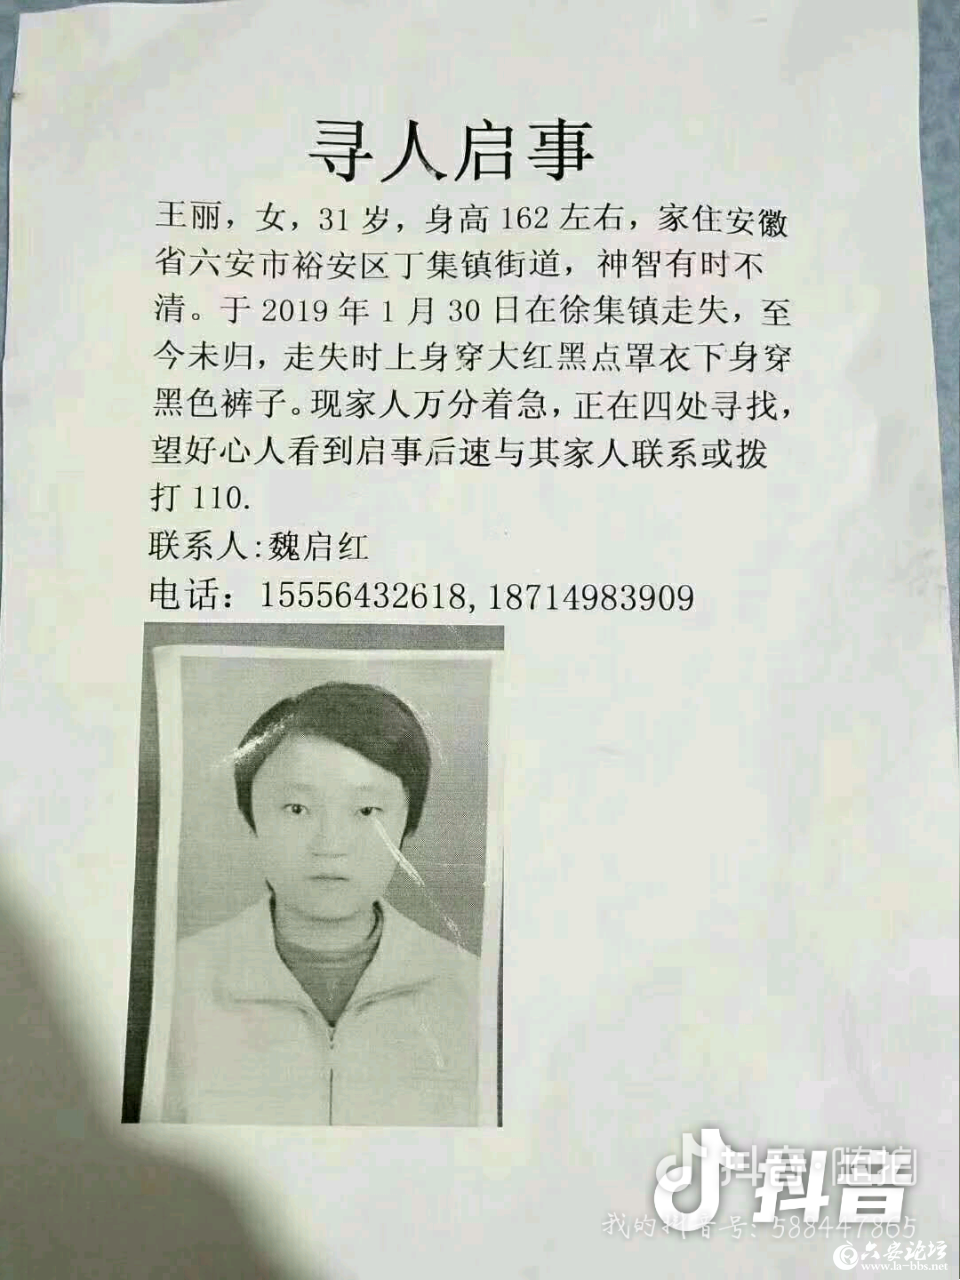 寻人启事
王丽，女，31岁，身高162左右，家住安徽
省六安市裕安区丁集镇街道，神智有时不
清。于2019年1月30日在徐集镇走失，至
今未归，走失时上身穿大红黑点罩衣下身穿
黑色裤子。现家人万分着急，正在四处寻找，
望好心人看到启事后速与其家人联系或拨
打110.
联系人:魏启红
电话：15556432618,18714983909
抖音·随拍
抖音
我的抖音号: 588447865
六安论坛
www.la-bbs.net